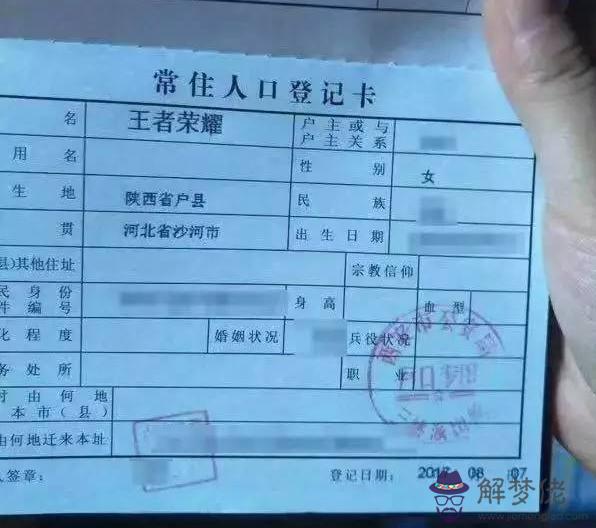 常住人口登记卡
名 王者荣耀 户主或与户主关系
用名 性别 女
生地 陕西省户县 民族
贯 河北省沙河市 出生日期
县)其他住址 宗教信仰
民身份
件编号 身高 血型
化程度 婚姻状况 兵役状况
务处所 职业
时由何地
本市(县)
由何地迁来本址
人签章: 登记日期: 2017 08 07
解梦佬